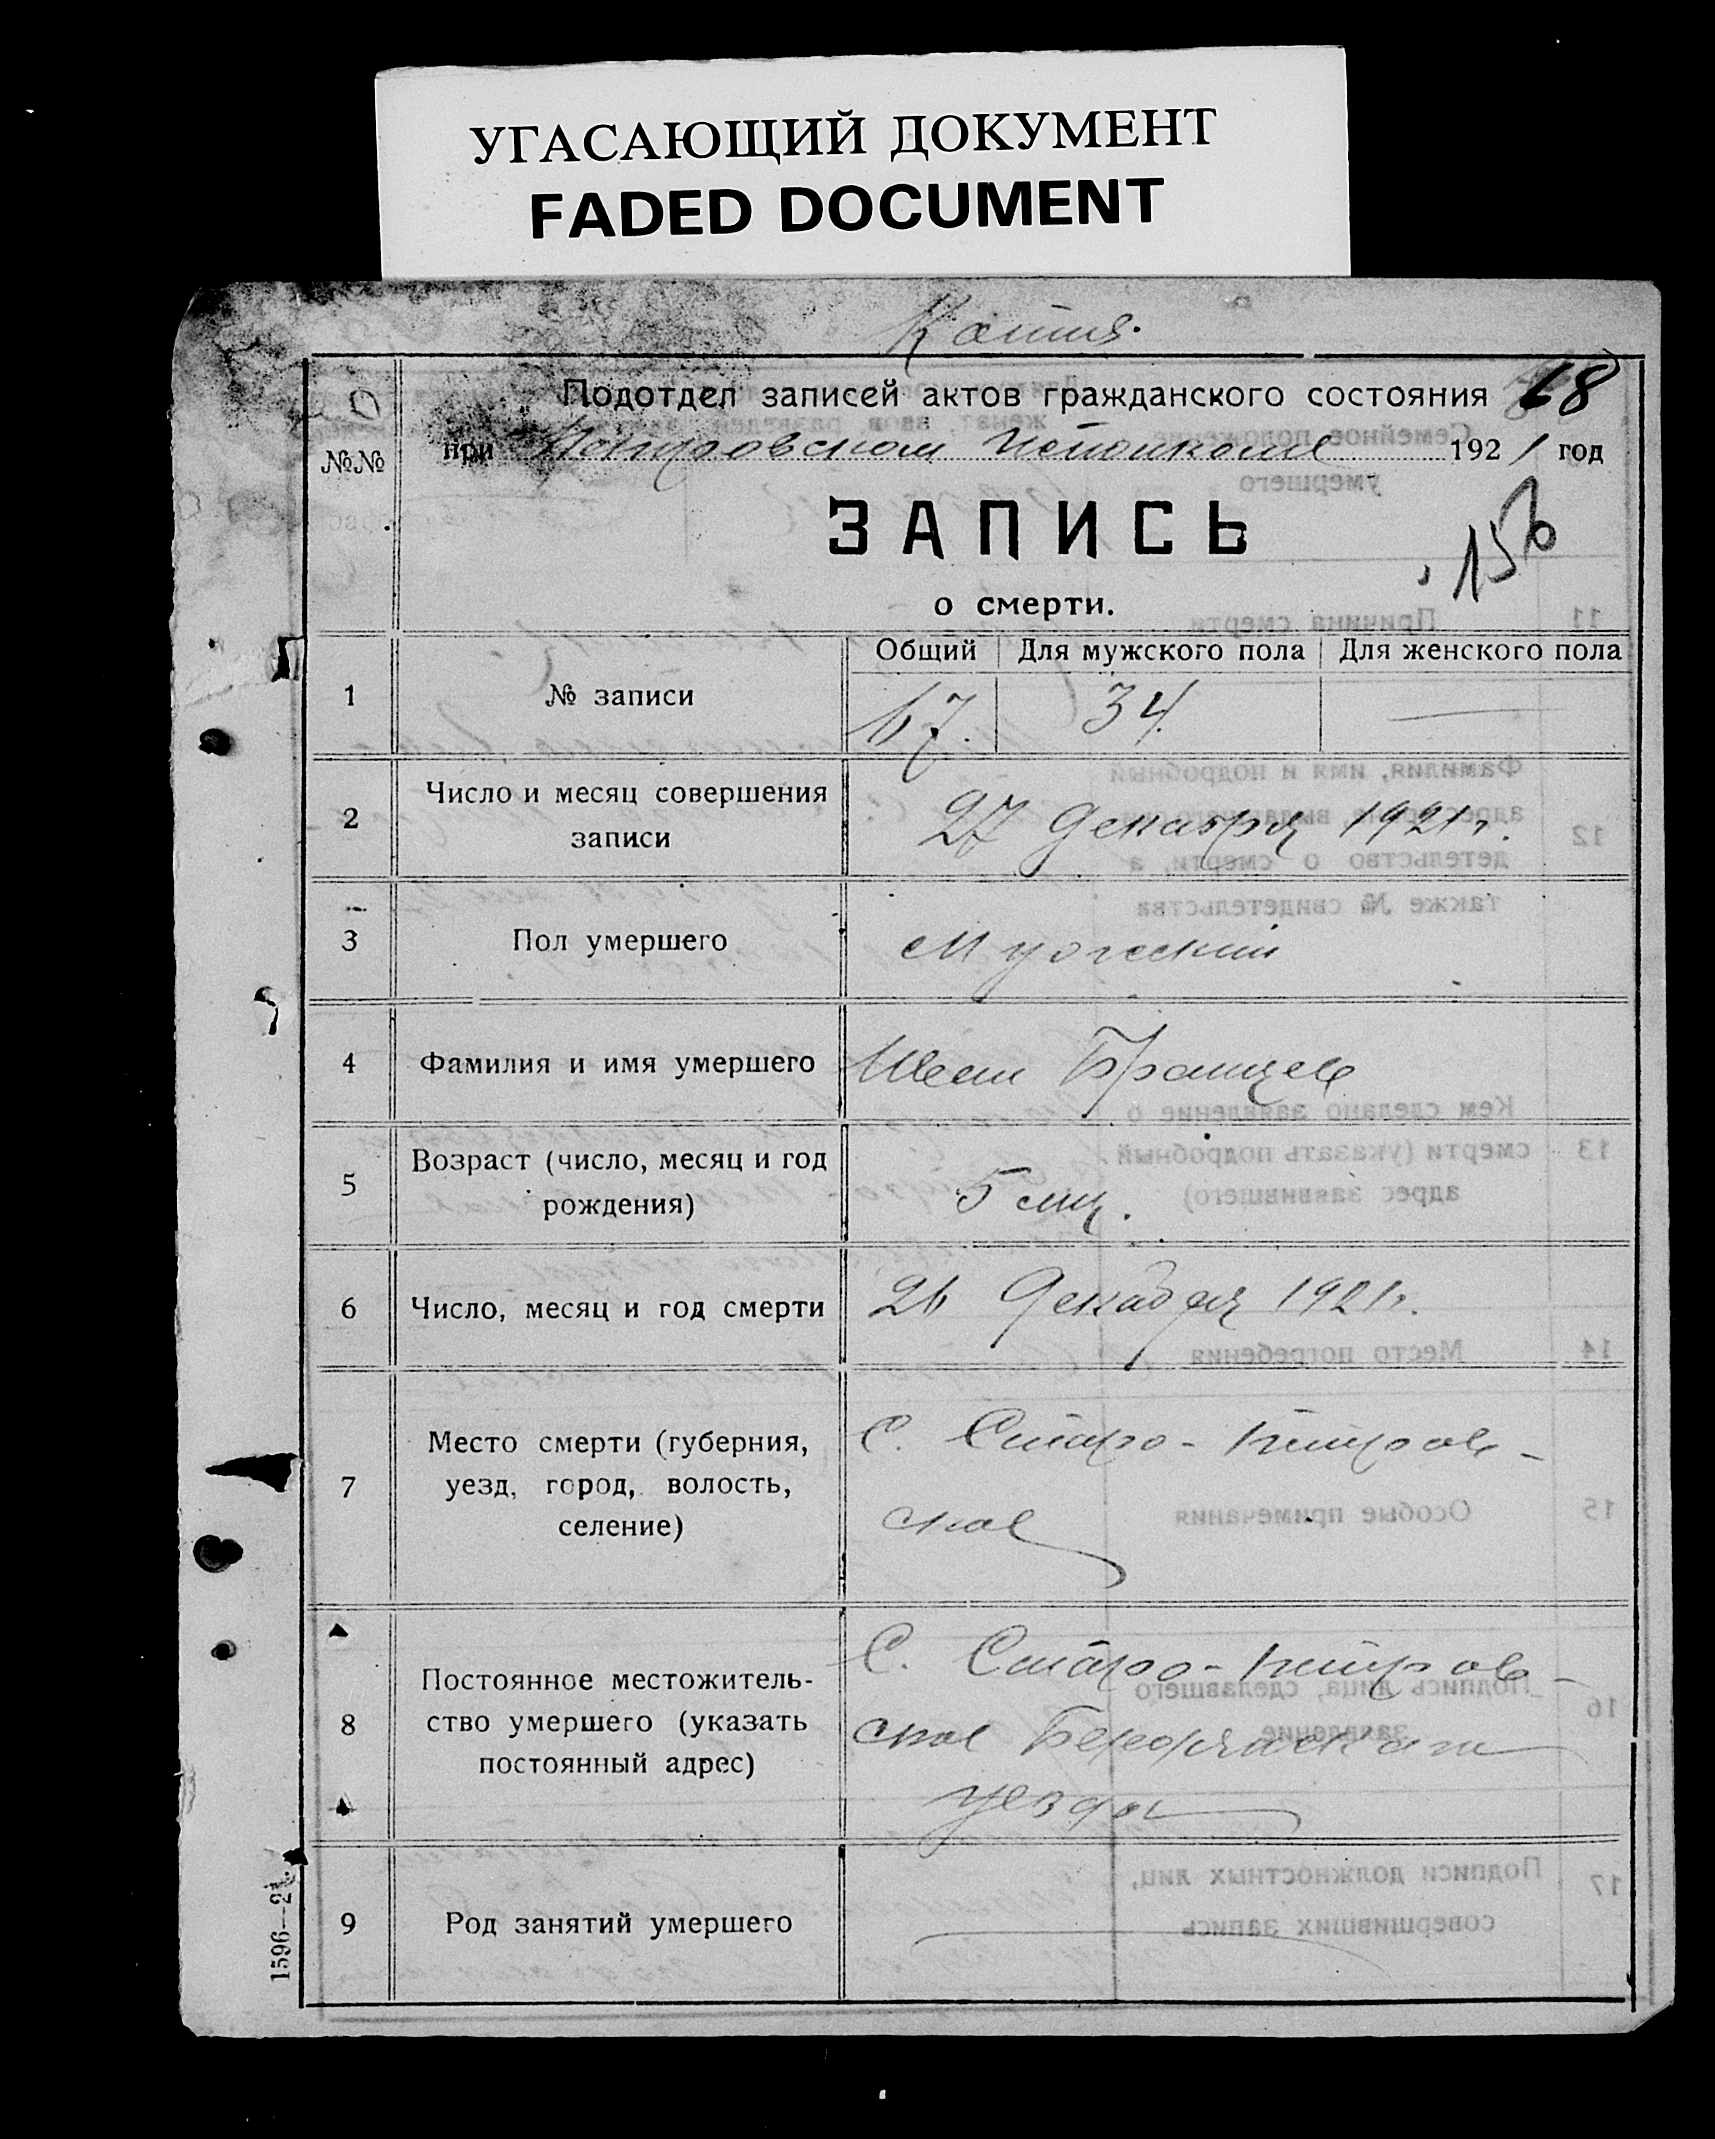 УГАСАЮЩИЙ ДОКУМЕНТ
FADED DOCUMENT
Копия.
Подотдел записей актов гражданского состояния 68
№№ при Исполкоме 1921 год
ЗАПИСЬ
156
о смерти.
Общий Для мужского пола Для женского пола
1 № записи 67. 34. —
2 Число и месяц совершения
записи 27 Декабря 1921 г.
3 Пол умершего Мужский
4 Фамилия и имя умершего
5 Возраст (число, месяц и год
рождения) 5 мц.
6 Число, месяц и год смерти 26 Декабря 1921 г.
7 Место смерти (губерния,
уезд, город, волость,
селение)
С. Старо-Петров-
ское
8 Постоянное местожитель-
ство умершего (указать
постоянный адрес)
С. Старо-Петров-
ское
уезда
9 Род занятий умершего —
1596—21.